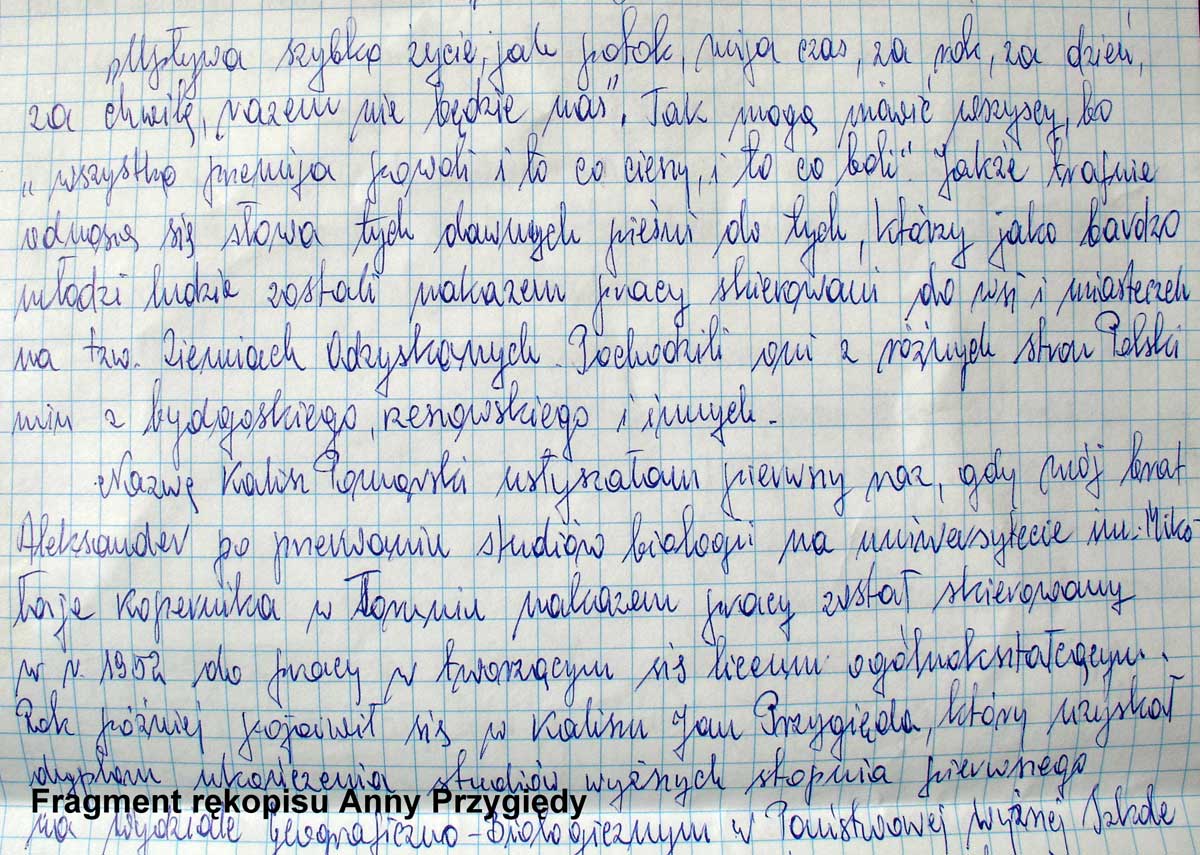 „Upływa szybko życie, jak potok, mija czas, za rok, za dzień,
za chwilę, razem nie będzie nas". Tak mogą mówić wszyscy, bo
„wszystko przemija powoli i to co cieszy, i to co boli". Jakże trafnie
odnoszą się słowa tych dawnych pieśni do tych, którzy jako bardzo
młodzi ludzie zostali nakazem pracy skierowani do wsi i miasteczek
na tzw. Ziemiach Odzyskanych. Pochodzili oni z różnych stron Polski
min z bydgoskiego, rzeszowskiego i innych.
Nazwę Kalisz Pomorski usłyszałam pierwszy raz, gdy mój brat
Aleksander po przerwaniu studiów biologii na uniwersytecie im. Miko
łaja Kopernika w Toruniu nakazem pracy został skierowany
w r. 1952 do pracy w tworzącym się liceum ogólnokształcącym.
Rok później pojawił się w Kaliszu Jan Przygięda, który uzyskał
dyplom ukończenia studiów wyższych stopnia pierwszego
Fragment rękopisu Anny Przygiędy
na wydziale geograficzno-biologicznym w Państwowej Wyższej Szkole